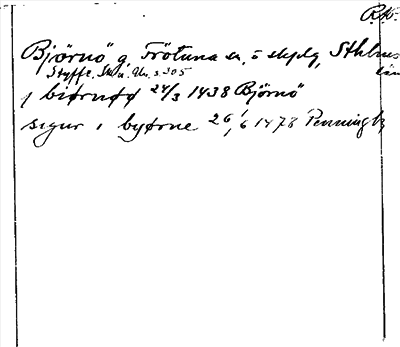 R.A.
Björnö g, Frötuna sn, ö skplg, Sthlms
län
Styffe. Sk. u. Un. s. 305
j biørnøø 24/3 1438 Björnö
sigur i byørne 26/6 1478 Penningby